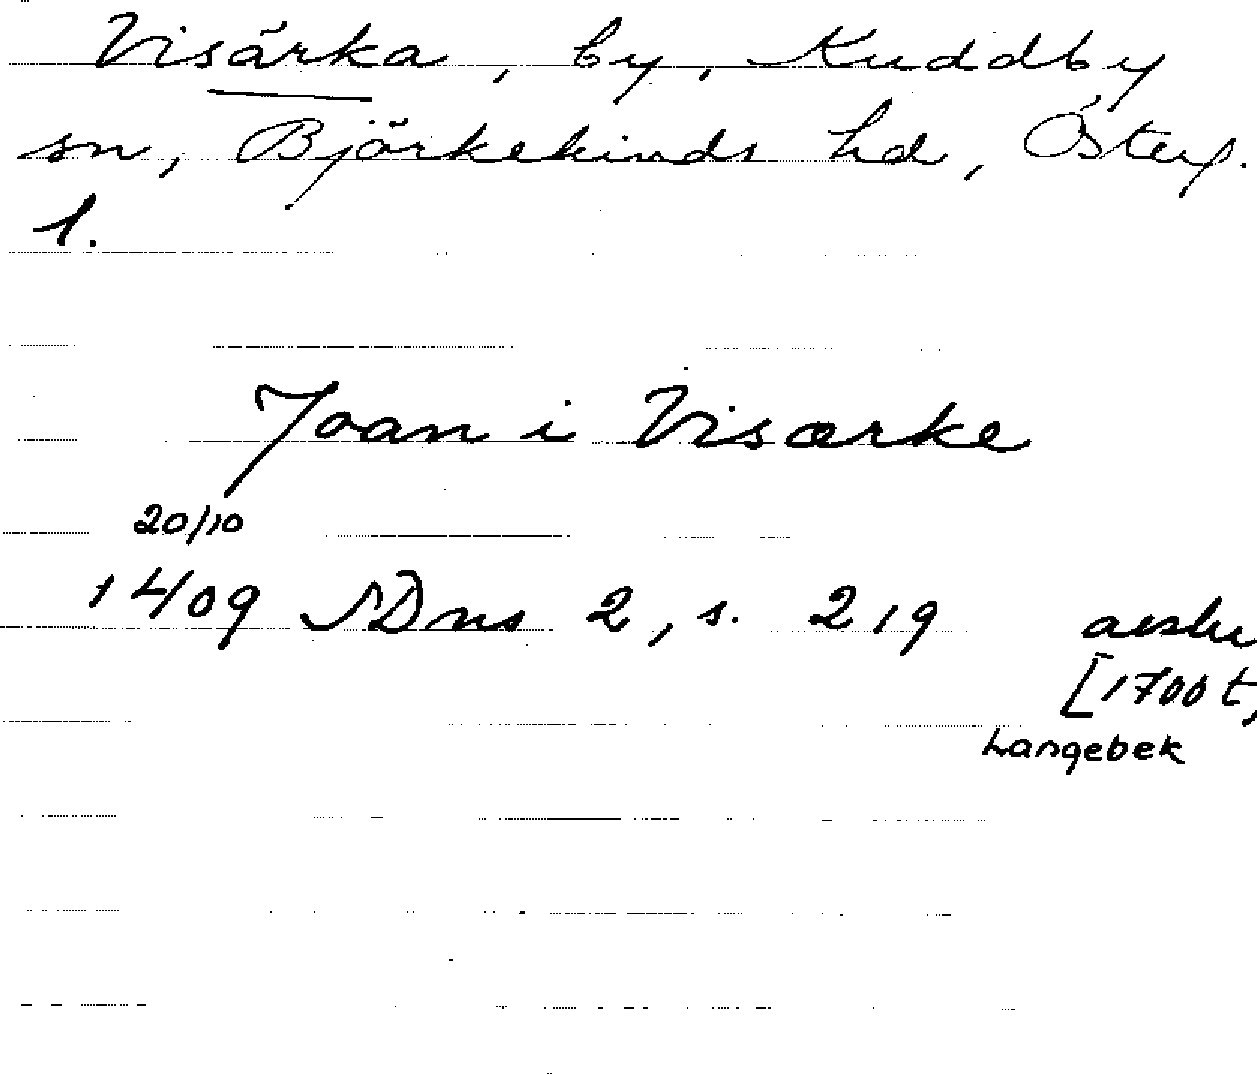 Visärka, by, Kuddby
sn, Björkekinds hd, Österg.
l.
Joan i Visærke
20/10
1409 SDns 2, s. 219 avskr
[1700 t,
Langebek